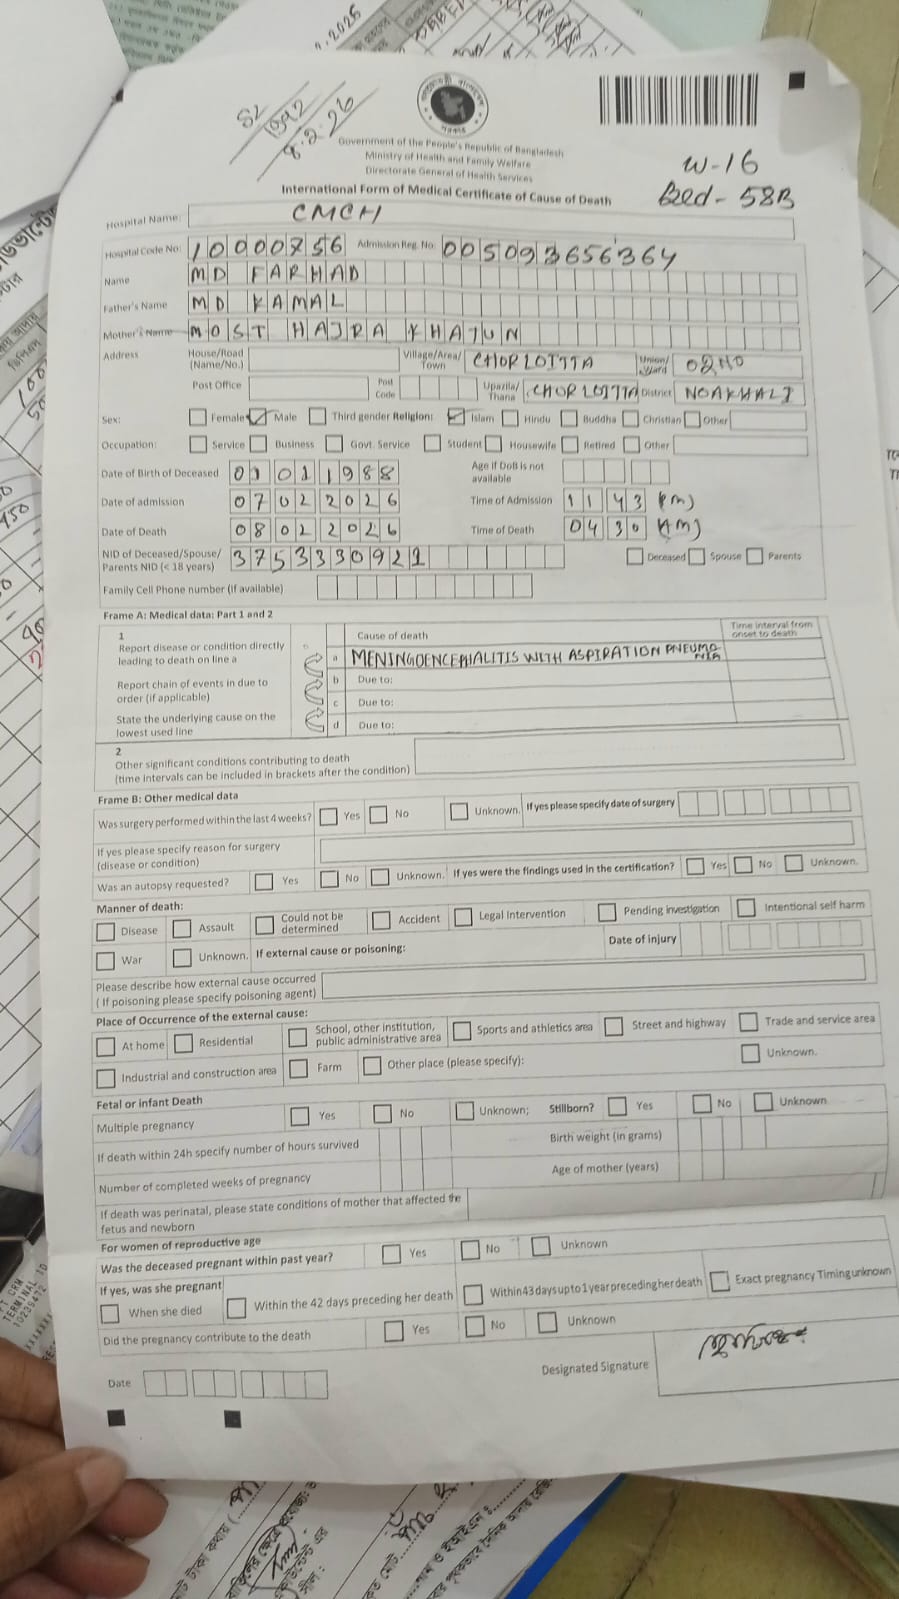 SL
1992
8.2.26
Government of the People's Republic of Bangladesh
Ministry of Health and Family Welfare
Directorate General of Health Services
International Form of Medical Certificate of Cause of Death
W-16
Bed-58B
Hospital Name: CMCH
Hospital Code No: 10000756 Admission Reg. No: 005093656364
Name MD FARHAD
Father's Name MD KAMAL
Mother's Name MOST HAJRA KHATUN
Address House/Road (Name/No.) Village/Area/Town CHOR LOITTA Union/Ward 02 NO
Post Office Post Code Upazila/Thana CHOR LOITTA District NOAKHALI
Sex: Female Male Third gender Religion: Islam Hindu Buddha Christian Other
Occupation: Service Business Govt. Service Student Housewife Retired Other
Date of Birth of Deceased 01 01 1988 Age if DoB is not available
Date of admission 07 02 2026 Time of Admission 11 43 (PM)
Date of Death 08 02 2026 Time of Death 04 30 (AM)
NID of Deceased/Spouse/Parents NID (< 18 years) 3753330921 Deceased Spouse Parents
Family Cell Phone number (if available)
Frame A: Medical data: Part 1 and 2
1 Cause of death Time interval from onset to death
Report disease or condition directly leading to death on line a
a MENINGOENCEPHALITIS WITH ASPIRATION PNEUMONIA
Report chain of events in due to order (if applicable)
b Due to:
c Due to:
State the underlying cause on the lowest used line
d Due to:
2
Other significant conditions contributing to death
(time intervals can be included in brackets after the condition)
Frame B: Other medical data
Was surgery performed within the last 4 weeks? Yes No Unknown. If yes please specify date of surgery
If yes please specify reason for surgery
(disease or condition)
Was an autopsy requested? Yes No Unknown. If yes were the findings used in the certification? Yes No Unknown.
Manner of death:
Disease Assault Could not be determined Accident Legal Intervention Pending investigation Intentional self harm
War Unknown. If external cause or poisoning: Date of injury
Please describe how external cause occurred
( If poisoning please specify poisoning agent)
Place of Occurrence of the external cause:
At home Residential School, other institution, public administrative area Sports and athletics area Street and highway Trade and service area
Industrial and construction area Farm Other place (please specify): Unknown.
Fetal or infant Death
Multiple pregnancy Yes No Unknown; Stillborn? Yes No Unknown
If death within 24h specify number of hours survived Birth weight (in grams)
Number of completed weeks of pregnancy Age of mother (years)
If death was perinatal, please state conditions of mother that affected the
fetus and newborn
For women of reproductive age
Was the deceased pregnant within past year? Yes No Unknown
If yes, was she pregnant
When she died Within the 42 days preceding her death Within 43 days up to 1 year preceding her death Exact pregnancy Timing unknown
Did the pregnancy contribute to the death Yes No Unknown
Date
Designated Signature